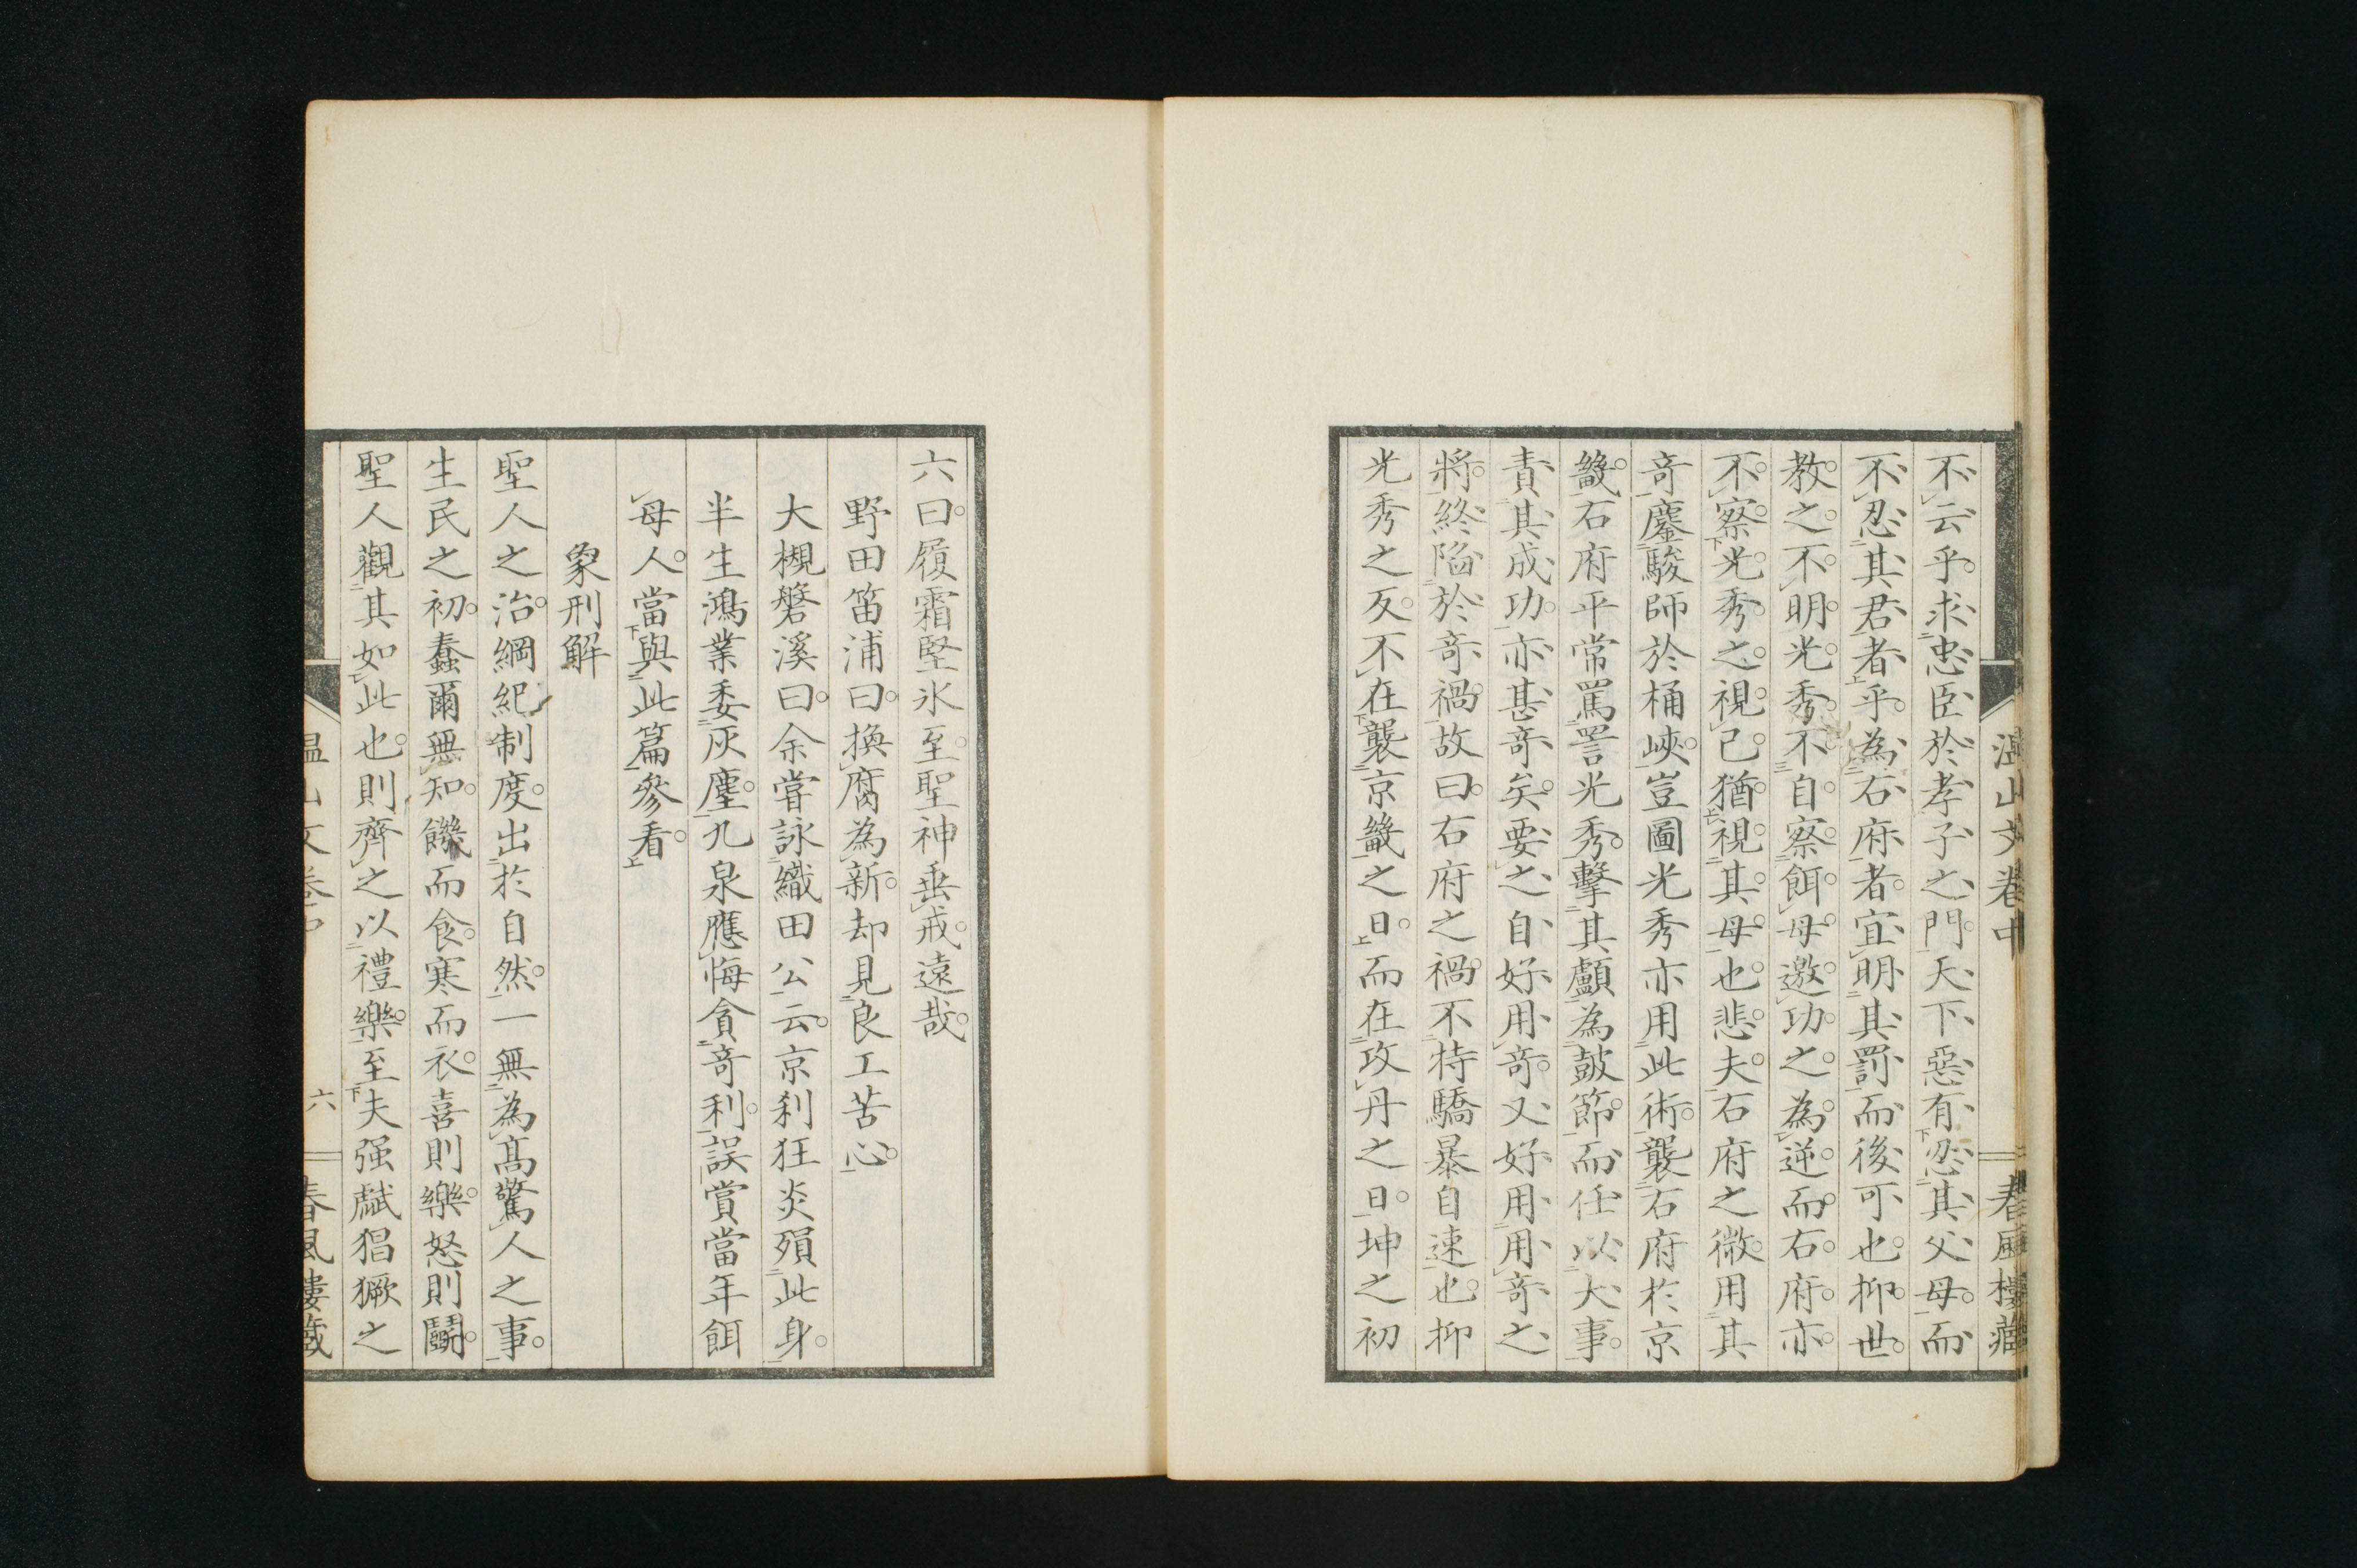 溫山文卷中 春風樓藏
不云乎。求忠臣於孝子之門。天下惡有忍其父母。而
不忍其君者乎。為石府者。宜明其罰。而後可也。抑世。
教之。不明。光秀。不自察。餌母。邀功。之為。逆。而。右府。亦。
不察。光秀之視己。猶視其母也。悲夫。右府之微。用其
奇。鏖駿師於桶峽。豈圖光秀亦用此術。襲右府於京
畿。石府平常罵詈光秀。擊其顱為鼓節。而任以大事。
責其成功。亦甚奇矣。要之自好用奇。又好用用奇之
將。終陷於奇禍。故曰。右府之禍。不特驕暴自速也。抑
光秀之反。不在襲京畿之日。而在攻丹之日。坤之初
六曰。履霜堅氷至。聖神垂戒。遠哉。
野田笛浦曰。換腐為新。却見良工苦心。
大槻磐溪曰。余嘗詠織田公云。京利狂炎殞此身。
半生鴻業委灰塵。九泉應悔貪奇利。誤賞當年餌
母人。當與此篇參看。
象刑解
聖人之治。綱紀制度。出於自然。一無為高驚人之事。
生民之初。蠢爾無知。饑而食。寒而衣。喜則樂。怒則鬪。
聖人觀其如此也。則齊之以禮樂。至夫强虣猖獗之
溫山文卷中 六 春風樓藏